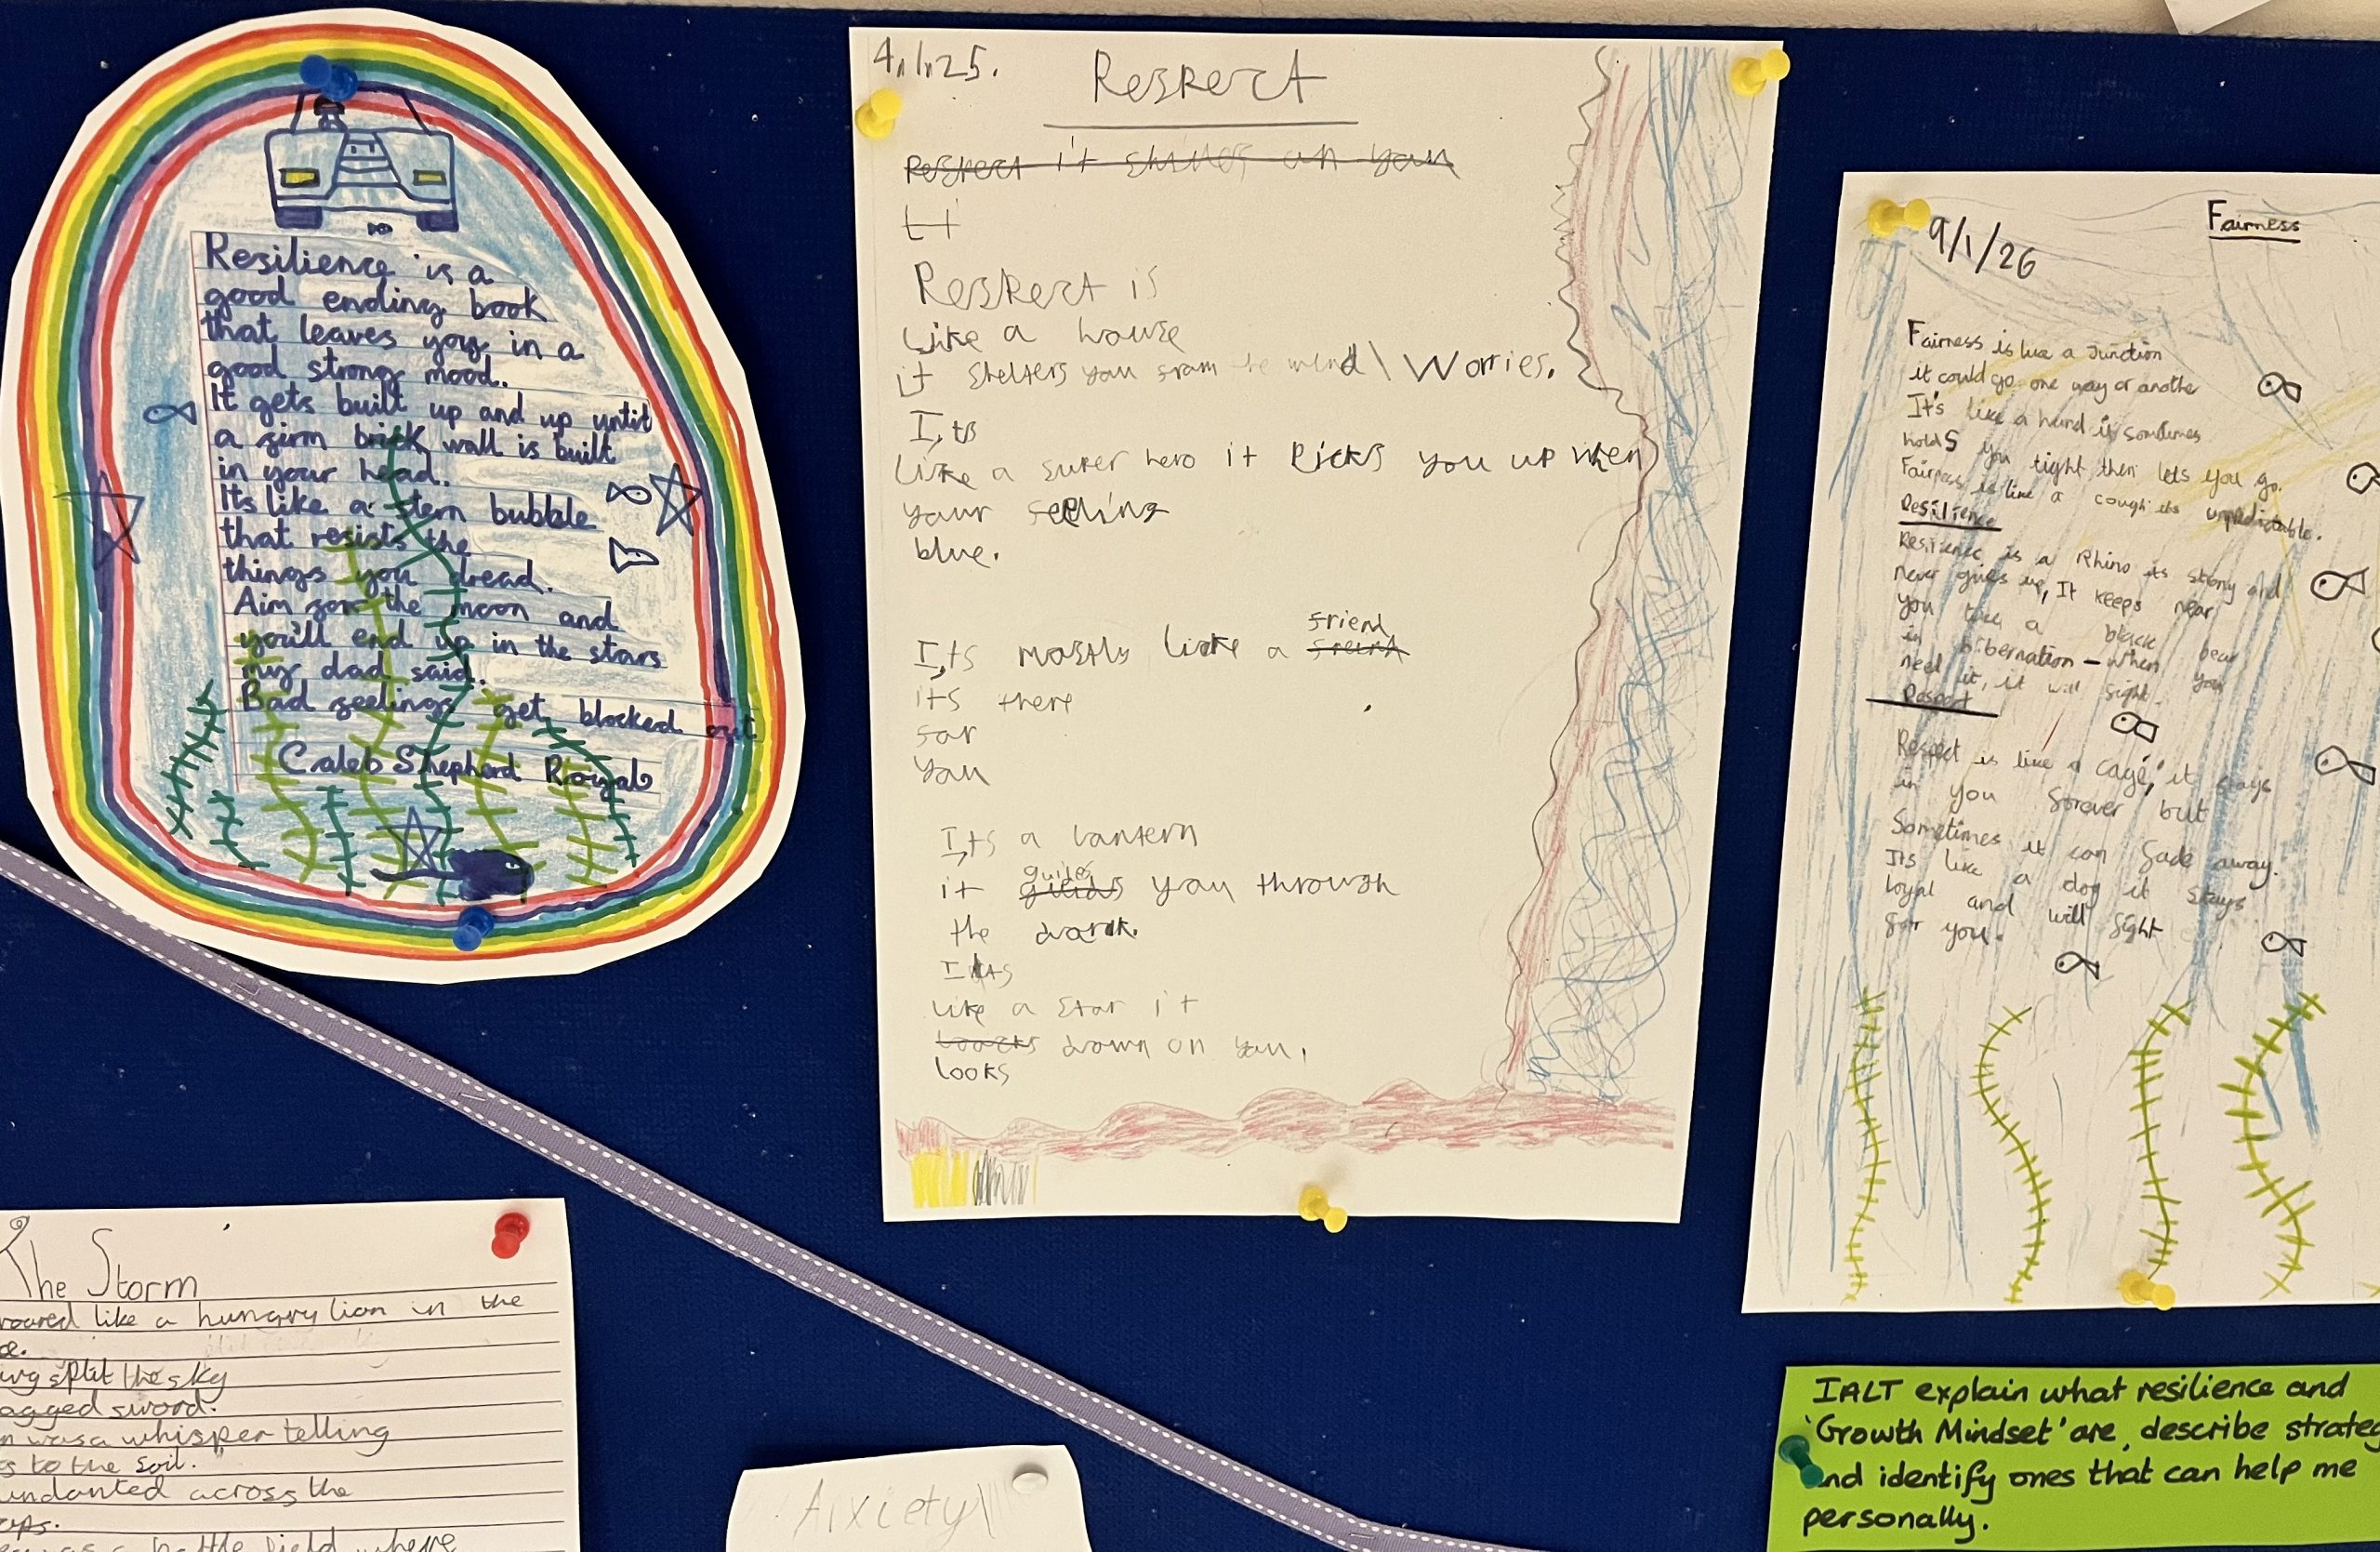 Resilience is a
good ending book
that leaves you in a
good strong mood.
It gets built up and up until
a firm brick wall is built
in your head.
Its like a stern bubble
that resists the
things you dread.
Aim for the moon and
you'll end up in the stars
my dad said.
Bad feelings get blocked out
Caleb Shepherd Royal
4.1.25.
Respect
Respect it shines on you
Respect is
Like a house
it shelters you from the wind \ Worries.
I,ts
like a super hero it Picks you up when
your feeling
blue.
I,ts mostly like a friend
its there
for
you
I,ts a lantern
it guides you through
the dark.
Its
like a star it
looks down on you.
looks
9/1/26
Fairness
Fairness is like a Junction
it could go one way or another
It's like a hand it sometimes
holds you tight then lets you go.
Fairness is like a cough its unpredictable.
Resilience
Resilience is a Rhino its strong and
never gives up, It keeps near
you like a black bear
in hibernation – when you
need it, it will fight.
Respect
Respect is like a cage, it stays
in you forever but
Sometimes it can fade away.
Its like a dog it stays
loyal and will fight
for you.
The Storm
roared like a hungry lion in the
split the sky
agged sword.
was a whisper telling
to the soil.
undanted across the
battle field where
Aixiety
IALT explain what resilience and
'Growth Mindset' are, describe strateg
and identify ones that can help me
personally.